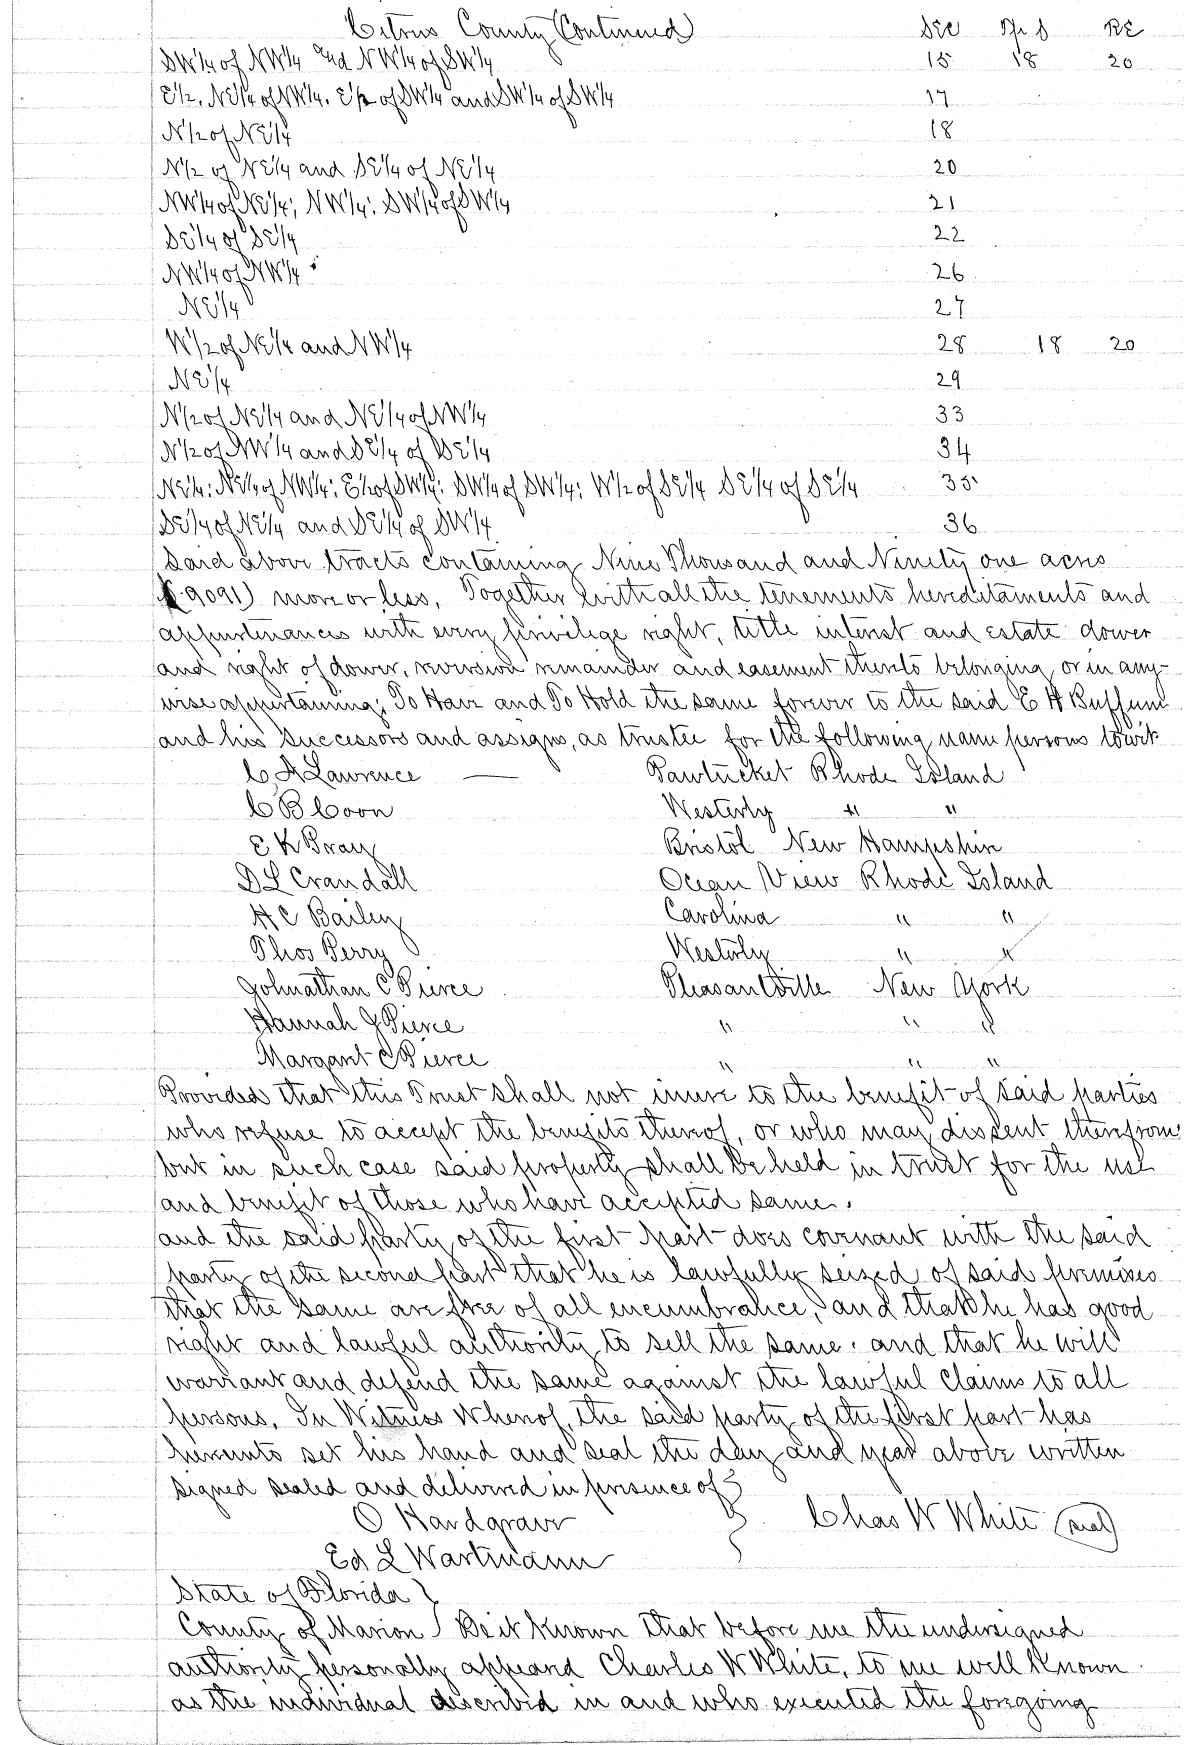 Citrus County (Continued) Sec Tp S RE
SW1/4 of NW1/4 and NW1/4 of SW1/4 15 18 20
E1/2, NE1/4 of NW1/4. E1/2 of SW1/4 and SW1/4 of SW1/4 17
N1/2 of NE1/4 18
N1/2 of NE1/4 and SE1/4 of NE1/4 20
NW1/4 of NE1/4; NW1/4: SW1/4 of SW1/4 21
SE1/4 of SE1/4 22
NW1/4 of NW1/4 26
NE1/4 27
W1/2 of NE1/4 and NW1/4 28 18 20
NE1/4 29
N1/2 of NE1/4 and NE1/4 of NW1/4 33
N1/2 of NW1/4 and SE1/4 of SE1/4 34
NE1/4: NE1/4 of NW1/4: E1/2 of SW1/4: SW1/4 of SW1/4: W1/2 of SE1/4 SE1/4 of SE1/4 35
SE1/4 of NE1/4 and SE1/4 of SW1/4 36
Said above tracts containing Nine Thousand and Ninety one acres
(9091) more or less. Together with all the tenements hereditaments and
appurtenances with every privilege right, title interest and estate dower
and right of dower, reversion remainder and easement thereto belonging or in any-
wise appertaining; To Have and To Hold the same forever to the said E H Buffum
and his successors and assigns, as trustee for the following name persons towit
C A Lawrence — Pawtucket Rhode Island
C B Coon Westerly " "
E K Bray Bristol New Hampshire
D L Crandall Ocean View Rhode Island
H C Bailey Carolina " "
Thos Perry Westerly " "
Johnathan C Pierce Pleasantville New York
Hannah J Pierce " " "
Margaret C Pierce " " "
Provided that this Trust shall not inure to the benefit of said parties
who refuse to accept the benefits thereof, or who may dissent therefrom
but in such case said property shall be held in trust for the use
and benefit of those who have accepted same.
and the said party of the first part does covenant with the said
party of the second part that he is lawfully seized of said premises
that the same are free of all encumbrance, and that he has good
right and lawful authority to sell the same. and that he will
warrant and defend the same against the lawful claims to all
persons. In Witness Whereof, the said party of the first part has
hereunto set his hand and seal the day and year above written
signed sealed and delivered in presence of }
O Hardgrave Chas W White (seal)
Ed L Wartmann
State of Florida }
County of Marion } Be it known that before me the undersigned
authority personally appeard Charles W White, to me well known
as the individual described in and who executed the foregoing